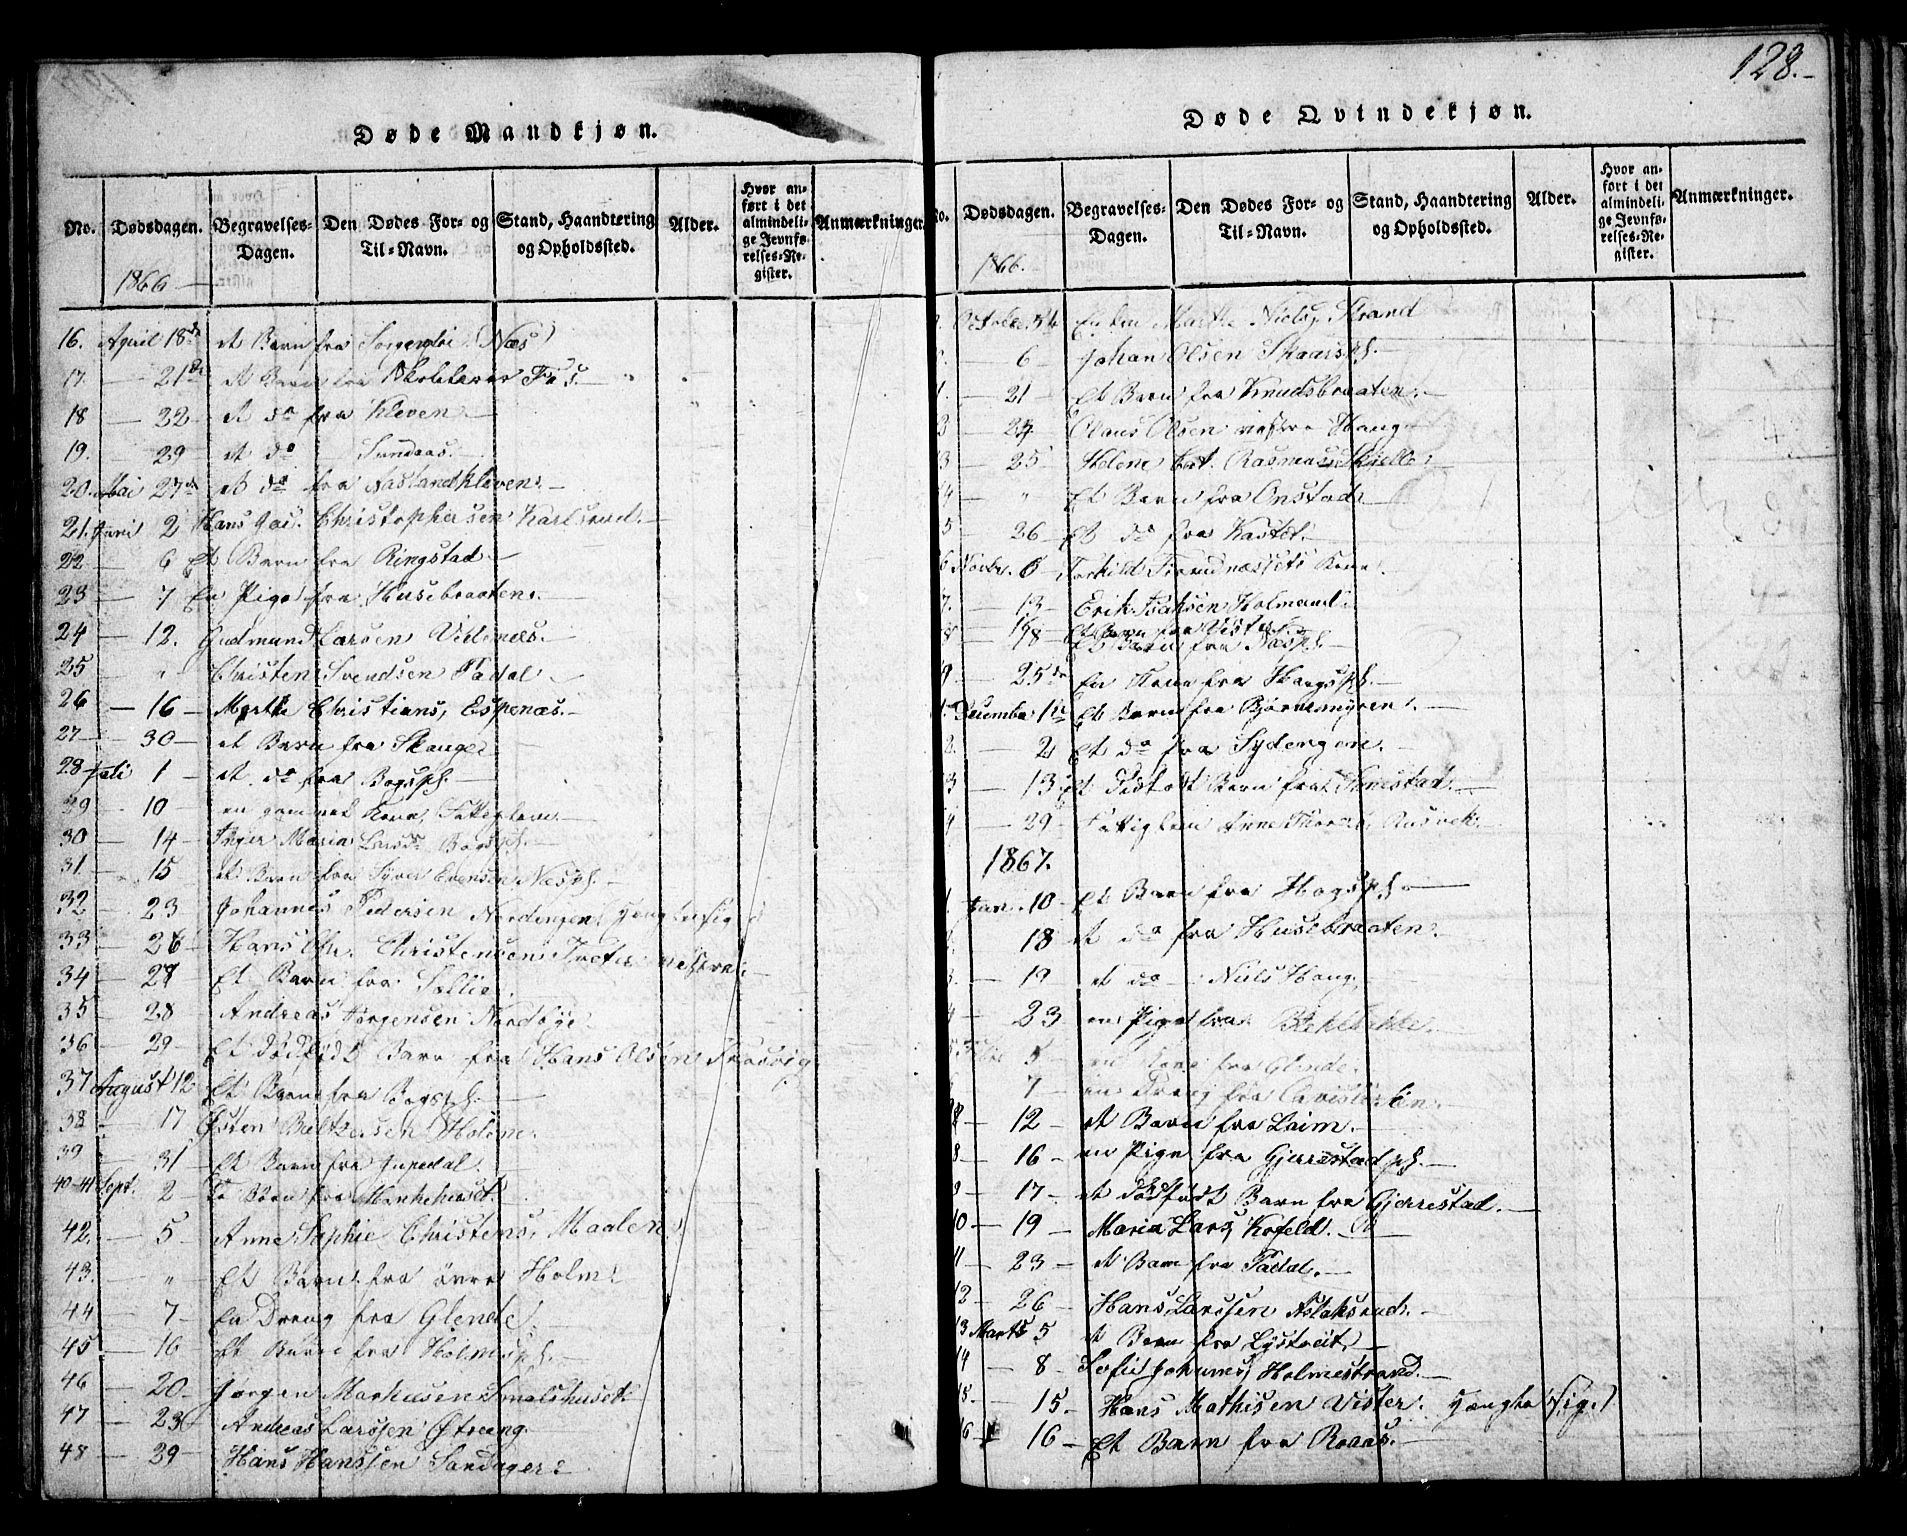 Døde Mandkjøn.
No.
Dødsdagen.
Begravelses-Dagen.
Den Dødes For- og Til-Navn.
Stand, Haandtering og Opholdssted.
Alder.
Hvor anført i det almindelige Jevnførelses-Register.
Anmærkninger.
1866
16. April 18de et Barn fra Næs
17. — 21de et Barn fra
18 — 22 et do fra Kleven —
19. — 29 et do Sundaas. —
20. Mai 27de et do fra Næslandkleven. —
21. Juni 2 Hans Jac. Christophersen Karlsrud. —
22 — 6 Et Barn fra Ringstad —
23 — 7 En Pige fra Husebraaten. —
24 — 12. Gudmund Larsen Videnæs. —
25 — " Christen Svendsen Tadal —
26 — 16 — Marthe Christians, Espenæs. —
27 — 30 — et Barn fra Skauge
28 Juli 1 — et do fra Bogsph. —
29 — 10 — en gammel Kone, Fattiglem. —
30 — 14 — Inger Maria Larsdr Bogsph. —
31 — 15 et Barn fra Syver Evensen Næsph. —
32 — 23 Johannes Pedersen Nordengen,
33 — 26 Hans Chr. Christensen Tveter vestre. —
34 — 27 Et Barn fra Sollie.
35 — 28 Andreas Jørgensen Nordbye.
36 — 29 — Et dødfødt Barn fra Hans Olsen
37 August 12 Et Barn fra Bogsph. —
38 — 17 Østen Beltersen Holene.
39 — 31 Et Barn fra
40-41 Sept. 2 To Børn fra
42. — 5 Anne Sophie Christens, Maalen
43. — " Et Barn fra øvre Holm
44 — 7 En Dreng fra Glende.
45 — 16 Et Barn fra Holmsph. —
46 — 20. Jørgen Markusen Smalshuset.
47 — 23 Andreas Larssen Østreng.
48 — 29 — Hans Hanssen Sandager
128.
Døde Qvindekjøn.
No.
Dødsdagen.
Begravelses-Dagen.
Den Dødes For- og Til-Navn.
Stand, Haandtering og Opholdssted.
Alder.
Hvor anført i det almindelige Jevnførelses-Register.
Anmærkninger.
1866.
Enken Marthe Niels, Strand
— 6 Johan Olsen Skaarsph. —
— 21 Et Barn fra Knudsbraaten. —
— 24 Claus Olsen vestre Haug —
— 25 Helene Cat. Rasmus, Skjelle
— " Et Barn fra Onstad —
5 — 26 — Et do fra Kastet. —
6 Novbr. 6 — Torhild Trandnæssets Kone.
7. — 13 — Erik Isaksen Holmand.
8 — 18 Et Barn fra
Et Barn fra Næsph. —
9 — 25de En Kone fra Haugsph. —
December Et Barn fra Bjørnemyren. —
2. — 2 Et do fra Sydengen. —
3 — 13 Et dødfødt Barn fra —
4 — 29 — Fattiglem Anne
1867.
1 Jan. 10 Et Barn fra Hogsph. —
18 et do fra Husebraaten.
— 19 et do Niels Haug
4 — 23 en Pige fra
5 en Kone fra Glende.
— 7 — en Dreng fra
— 12 — et Barn fra Laim. —
8 — 16 — en Pige fra Gjerrestad ph. —
9 — 17 — et dødfødt Barn fra Gjerrestad. —
10 — 19 — Maria Lars, Kofeld. —
11 — 23 — et Barn fra Tadal. —
12 — 26 — Hans Larssen Aslaksrud. —
13 Marts 5 et Barn fra Lystveit, —
14 — 8 — Sofie Johannes, Holmestrand. —
15. — 15. — Hans Mathisen Vister.
16 — 16 — Et Barn fra Roaas. —